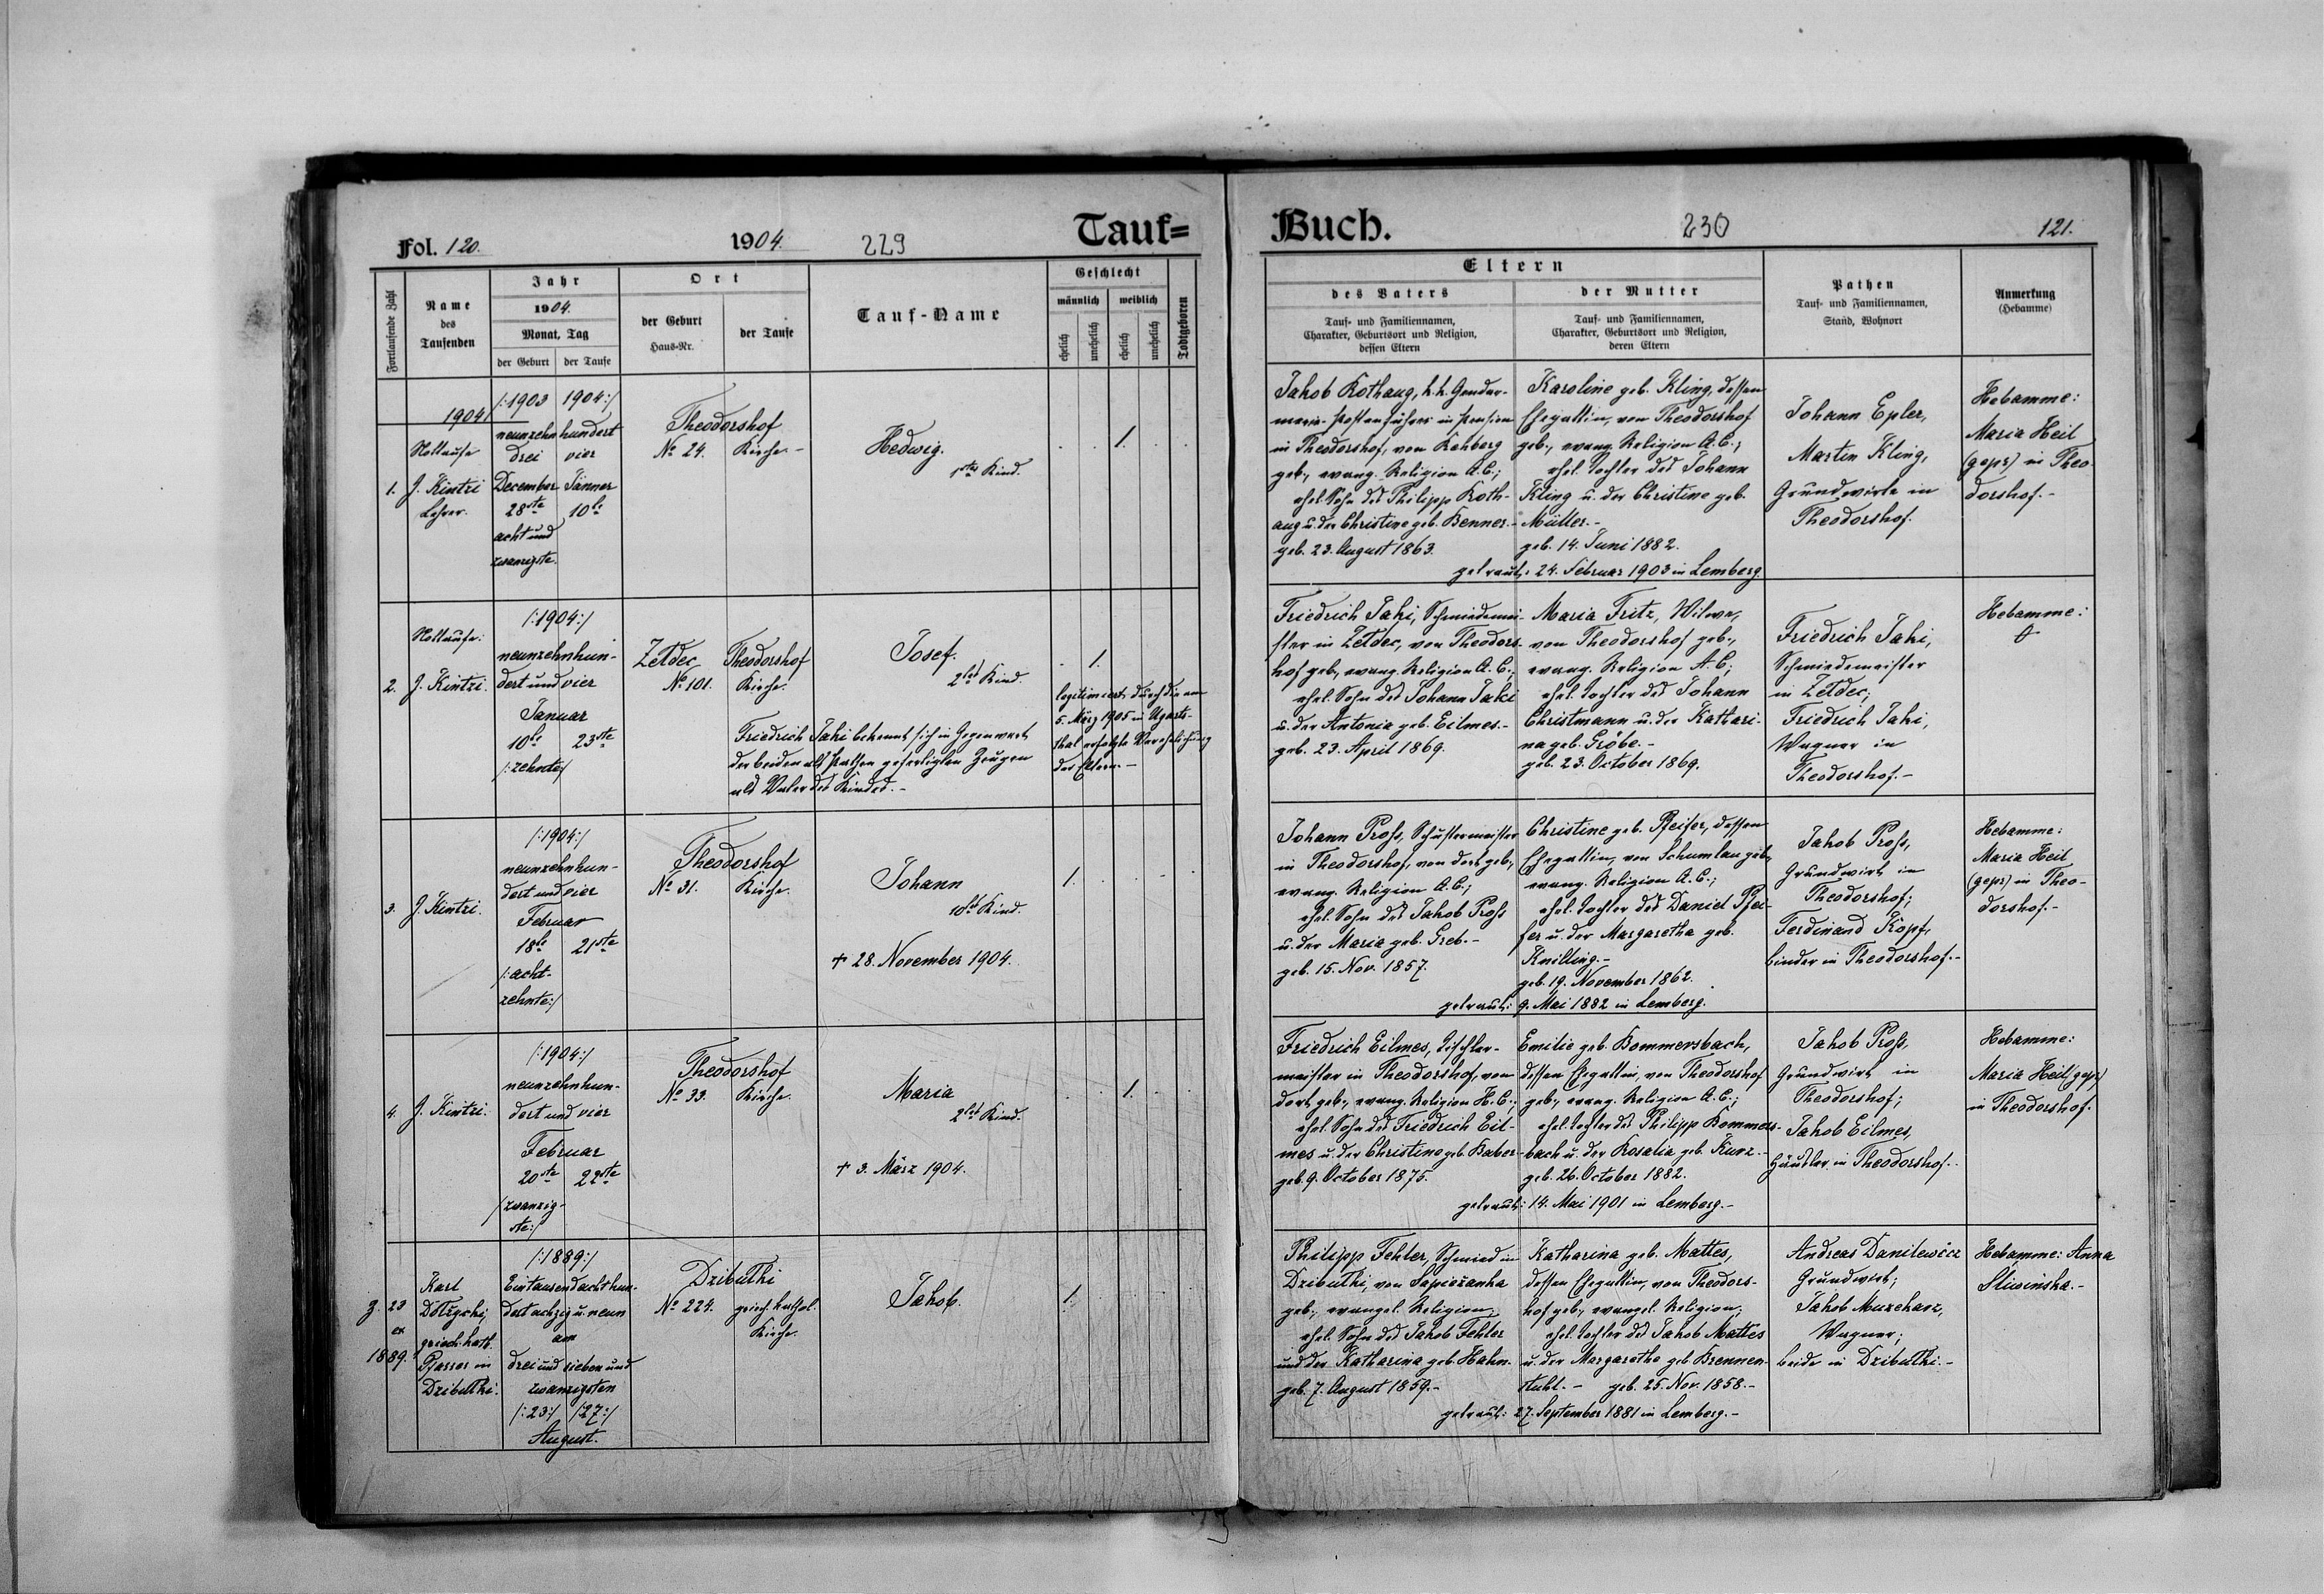 Fol. 120.
1904.
229
Tauf=
Fortlaufende Zahl
Name
des
Taufenden
Jahr
1904.
Monat, Tag
der Geburt
der Taufe
Ort
der Geburt
Haus-Nr.
der Taufe
Tauf-Name
Geschlecht
männlich
weiblich
ehelich
unehelich
ehelich
unehelich
Todtgeboren
1904
1.
Nottaufe
J. Kintzi
Lehrer.
/:1903 1904:/
neunzehnhundert
drei vier
December Jänner
28ste 10te
acht und
zwanzigste.
Theodorshof
No 24. Kirche.-
Hedwig.
1stes Kind.
1.
2.
Nottaufe:
J. Kintzi.
/:1904:/
neunzehnhun-
dert und vier
Januar
10te 23ste
/:zehnte:/
Zełdec
No 101.
Theodorshof
Kirche.
Josef.
2tes Kind.
1.
Friedrich Jaki bekennt sich in Gegenwart
der beiden als Pathen gefertigten Zeugen
als Vater des Kindes.-
legitimiert durch die am
5. März 1905 in Ugarts-
thal erfolgte Verehelichung
der Eltern.-
3.
J. Kintzi.
/:1904:/
neunzehnhun-
dert und vier
Februar
18te 21ste
/:acht-
zehnte:/
Theodorshof
No 31. Kirche.
Johann
10tes Kind.
† 28. November 1904.
1.
4.
J. Kintzi.
/:1904:/
neunzehnhun-
dert und vier
Februar
20ste 22ste
/zwanzig-
ste:/
Theodorshof
No 33. Kirche.
Maria
2tes Kind.
† 3. März 1904.
1.
Z. 23
ex
1889.
Karl
griech. kath.
Pfarrer in
Dzibułki.
/:1889:/
Eintausendachthun-
dert achzig u. neun
am
drei und sieben und
zwanzigsten
/:23:/ /:27:/
August.
Dzibułki
No 224. griech. kathol.
Kirche.
Jakob.
1.
Buch.
230
121.
Eltern
des Vaters
Tauf- und Familiennamen,
Charakter, Geburtsort und Religion,
dessen Eltern
der Mutter
Tauf- und Familiennamen,
Charakter, Geburtsort und Religion,
deren Eltern
Pathen
Tauf- und Familiennamen,
Stand, Wohnort
Anmerkung
(Hebamme)
Jakob Kothaug, k.k. Gendar-
merie-Postenführer in Pension
in Theodorshof, von Kahberg
geb., evang. Religion A.C.;
ehel. Sohn des Philipp Koth-
aug u. der Christine geb. Kenner.-
geb. 23. August 1863.
Karoline geb. Kling, dessen
Ehegattin, von Theodorshof
geb., evang. Religion A.C.;
ehel. Tochter des Johann
Kling u. der Christine geb.
Müller.-
geb. 14. Juni 1882.
getraut: 24. Februar 1903 in Lemberg.
Johann Epler,
Martin Kling,
Grundwirte in
Theodorshof.
Hebamme:
Maria Heil
(gepr) in Theo-
dorshof.-
Friedrich Jaki, Schmiedemei-
ster in Zełdec, von Theodors-
hof geb., evang. Religion A.C.;
ehel. Sohn des Johann Jaki
u. der Antonia geb. Eilmes.-
geb. 23. April 1869.
Maria Fritz, Witwe,
von Theodorshof geb.,
evang. Religion A.C.;
ehel. Tochter des Johann
Christmann u. der Kathari-
na geb. Gröbe.-
geb. 23. October 1869.
Friedrich Jaki,
Schmiedemeister
in Zełdec;
Friedrich Jaki,
Wagner in
Theodorshof.-
Hebamme:
Johann Proß, Schustermeister
in Theodorshof, von dort geb.,
evang. Religion A.C.;
ehel. Sohn des Jakob Proß
u. der Maria geb. Greb.-
geb. 15. Nov. 1857.
Christine geb. Pfeifer, dessen
Ehegattin, von Schumlau geb.,
evang. Religion A.C.;
ehel. Tochter des Daniel Pfei-
fer u. der Margaretha geb.
Knilling.-
geb. 19. November 1862.
getraut: 9. Mai 1882 in Lemberg.
Jakob Proß,
Grundwirt in
Theodorshof;
Ferdinand Kopf,
binder in Theodorshof.-
Hebamme:
Maria Heil
(gepr) in Theo-
dorshof.-
Friedrich Eilmes, Tischler-
meister in Theodorshof, von
dort geb., evang. Religion H.C.;
ehel. Sohn des Friedrich Eil-
mes u. der Christine geb. Kaber-
geb. 9. October 1875.
Emilie geb. Bommersbach,
dessen Ehegattin, von Theodorshof
geb., evang. Religion A.C.;
ehel. Tochter des Philipp Bommers-
bach u. der Rosalia geb. Kunz.-
geb. 26. October 1882.
getraut: 14. Mai 1901 in Lemberg.-
Jakob Proß,
Grundwirt in
Theodorshof;
Jakob Eilmes,
Häusler in Theodorshof.-
Hebamme:
Maria Heil (gepr)
in Theodorshof.
Philipp Fehler, Schmied in
Dzibułki, von Sapieżanka
geb., evangel. Religion;
ehel. Sohn des Jakob Fehler
und der Katharina geb. Hahn.
geb. 7. August 1859.-
Katharina geb. Mattes,
dessen Ehegattin, von Theodors-
hof geb., evangel. Religion;
ehel. Tochter des Jakob Mattes
u. der Margaretha geb. Brennen-
stuhl.- geb. 25. Nov. 1858.-
getraut: 27. September 1881 in Lemberg.-
Andreas Danilewicz
Grundwirt;
Jakob
Wagner;
beide in Dzibułki.-
Hebamme: Anna
Sliwinska.-